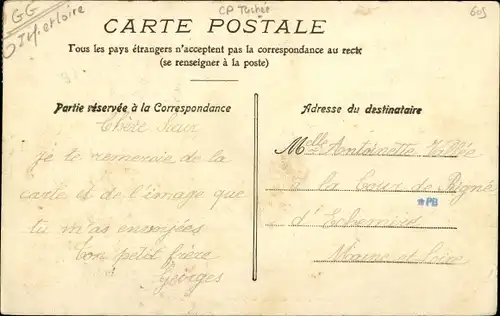 GG
CP Tachée
605
Ille et Loire
CARTE POSTALE
Tous les pays étrangers n'acceptent pas la correspondance au recto
(se renseigner à la poste)
Partie réservée à la Correspondance
Chère Sœur
je te remercie de la
carte et de l'image que
tu m'as envoyées
Ton petit frère
Georges
Adresse du destinataire
Melle Antoinette Vallée
à la Cour de Pigné
*PB
d'Echemiré
Maine et Loire